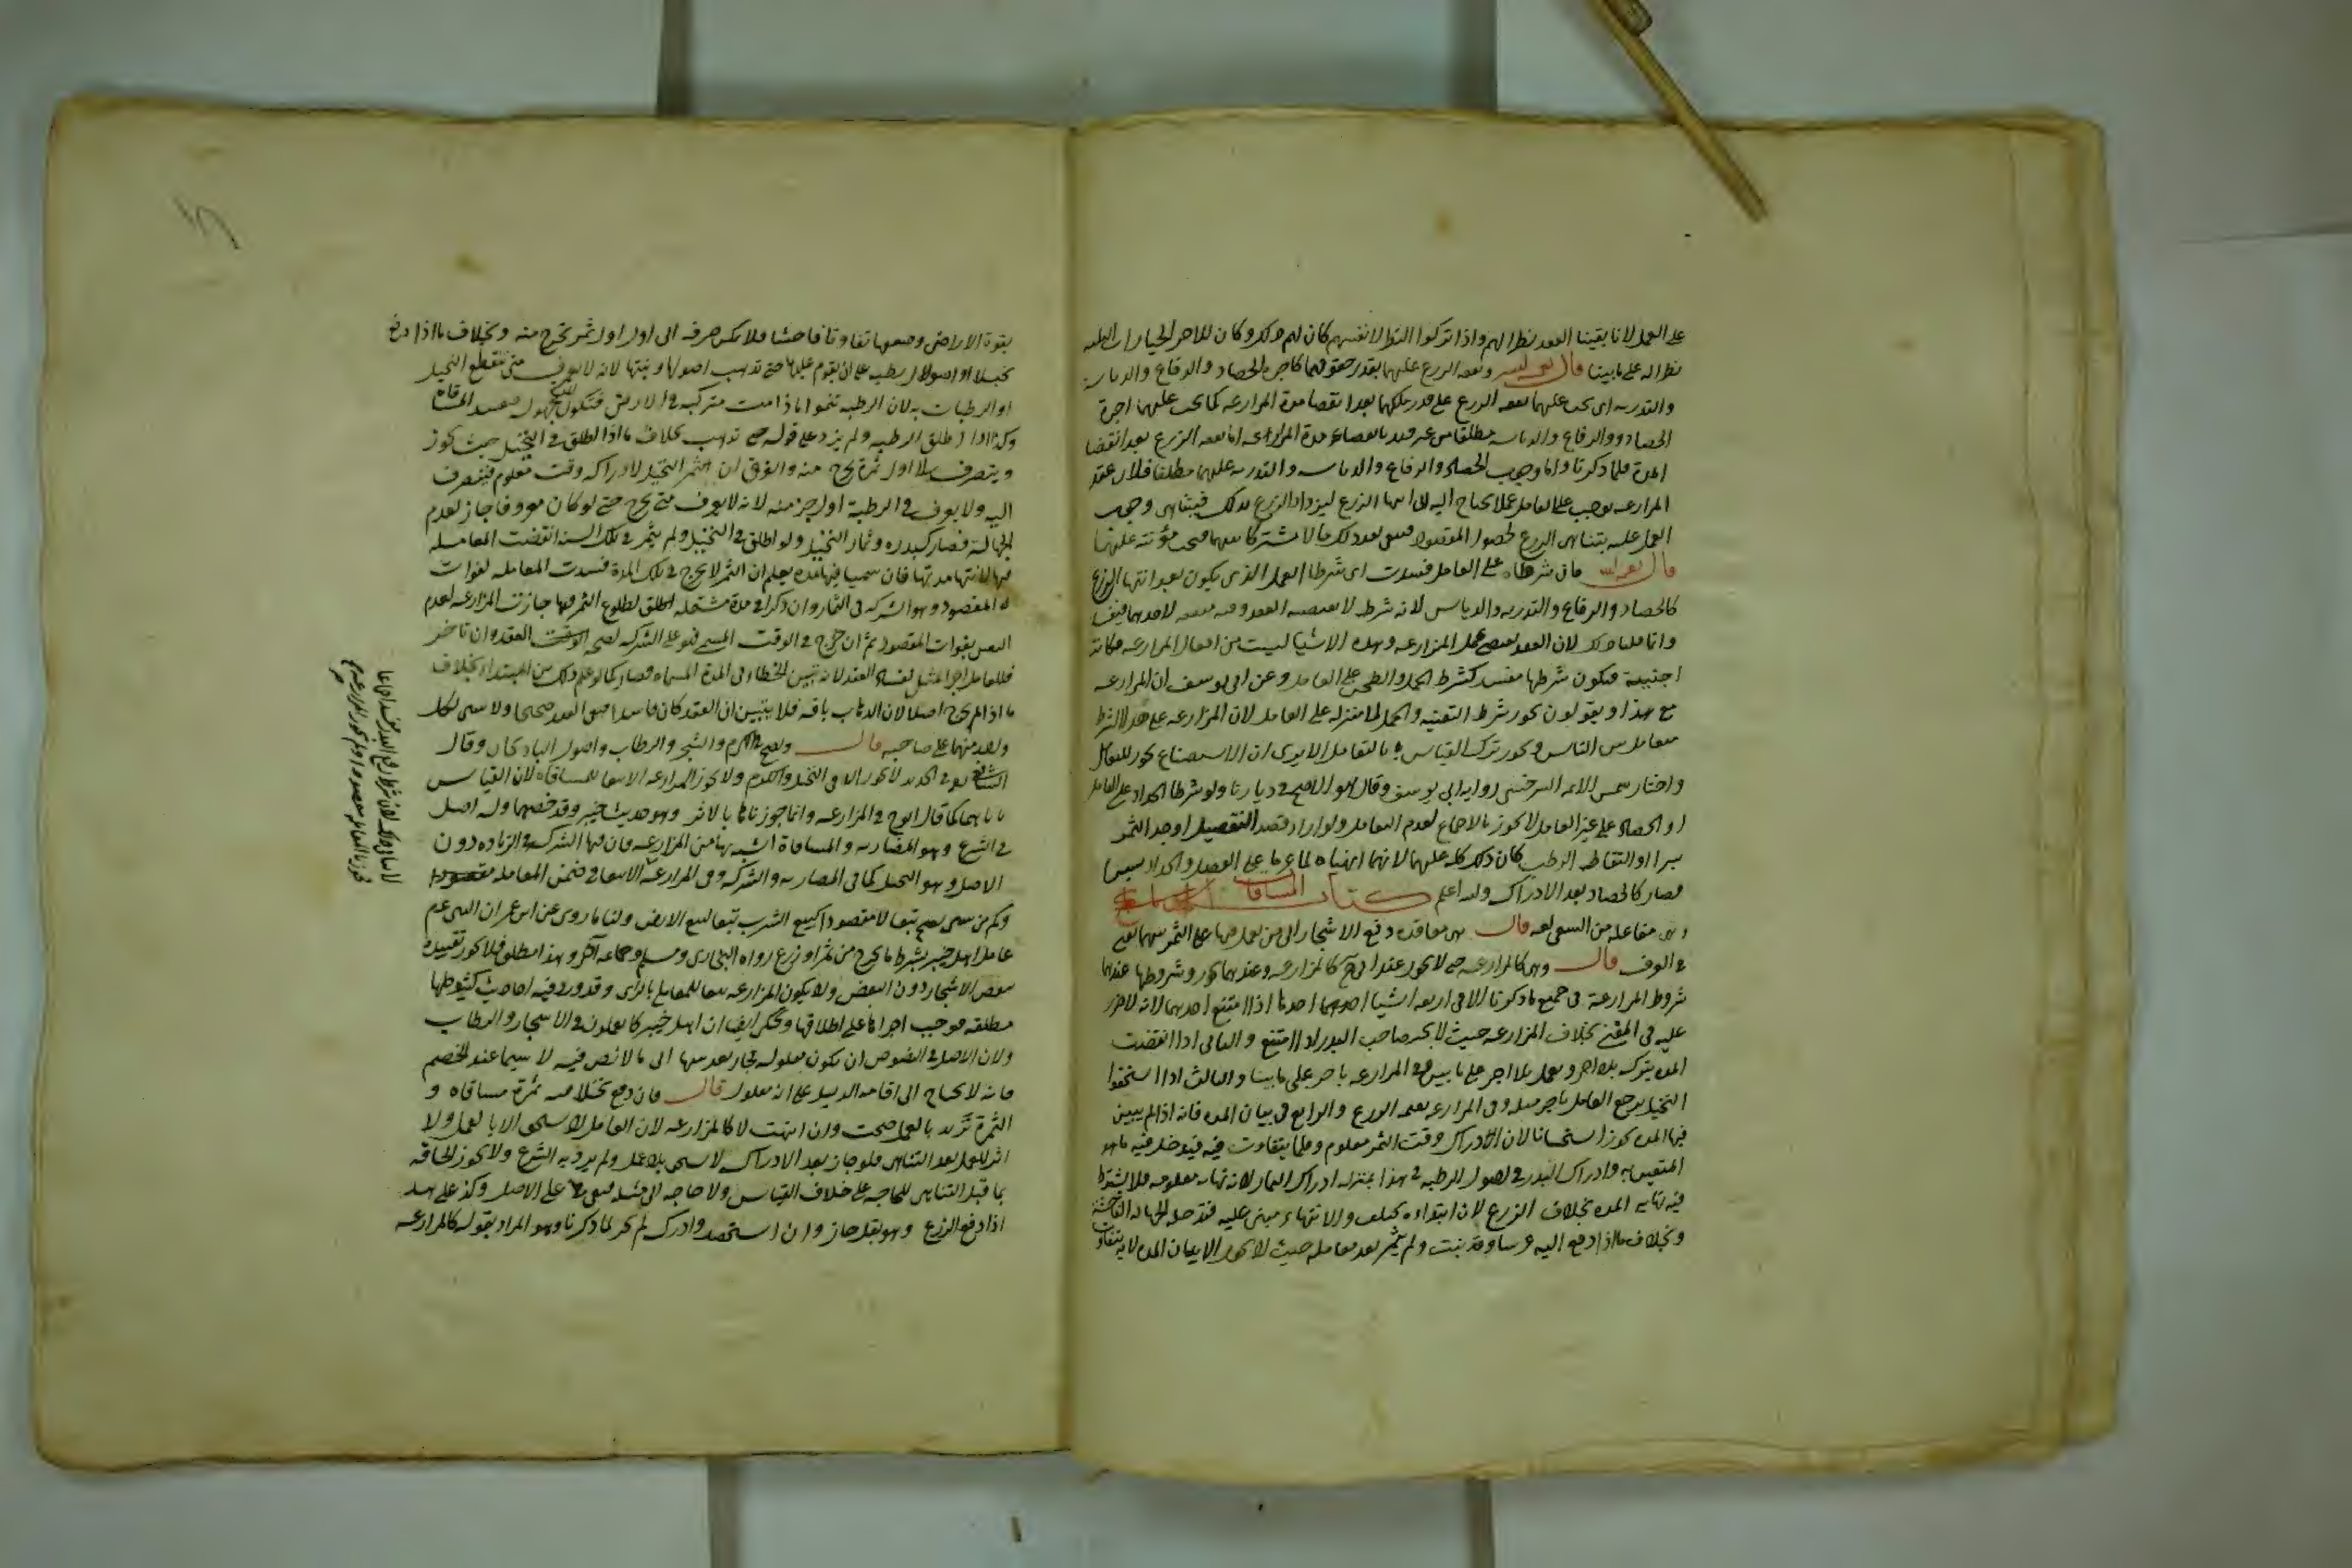 على العمل لانا بقينا العقد نظرا لهم واذا تركوا النظر لانفسهم كان لهم ذلك وكان للاخر الخيارات الثلثه
نظرا له على ما بينا قال نفقة الزرع عليهما بقدر حقوقهما كاجرة الحصاد والرفاع والدياسة
والتذريه اى يجب عليهما نفقه الزرع على قدر ملكهما بعد انقضا مدة المزارعه كما يجب عليهما اجرة
الحصاد والرفاع والدياسه مطلقا من غير قيد بانقضاء مدة المزارعه اما نفقه الزرع بعد انقضا
المدة فلما ذكرنا واما وجوب الحصاد والرفاع والدياسه والتذريه عليهما مطلقا فلان عقد
المزارعه يوجب على العامل عملا يحتاج اليه الى انتها الزرع ليزداد الزرع بذلك فيتناهى وجوب
العمل عليه بتناهى الزرع لحصول المقصود فيبقى بعد ذلك مالا مشتركا بينهما فتجب مؤنته عليهما
قال فان شرطاه على العامل فسدت اى شرطا العمل الذى يكون بعد انتها الزرع
كالحصاد والرفاع والتذريه والدياس لانه شرط لا يقتضيه العقد وفيه منفعه لاحدهما فيفسد
وانما قلنا ذلك لان العقد يقتضى عمل المزارعه وهذه الاشيا ليست من اعمال المزارعه فكانت
اجنبية فيكون شرطها مفسدا كشرط الحمل والطحن على العامل وعن ابى يوسف ان المزارعه
مع هذا ويقولون يجوز شرط التنقيه والحمل لمنزله على العامل لان المزارعه على هذا الشرط
متعامل بين الناس ويجوز ترك القياس بالتعامل الا يرى ان الاستصناع يجوز للتعامل
واختار شمس الائمه السرخسى روايه ابى يوسف وقال هو الاصح فى ديارنا ولو شرطا الجداد على العامل
او الحصاد على غير العامل لا يجوز بالاجماع لعدم التعامل ولو ارادا قصد القصيل او جد الثمر
بسرا او التقاط الرطب كان ذلك كله عليهما لانهما انهياه لما عزما على القصل والجداد بسرا
فصار كالحصاد بعد الادراك والله اعلم كتاب المساقاة
وهى مفاعله من السقى لغه قال هى معاقدة دفع الاشجار الى من يعمل فيها على الثمر بينهما يعنى
فى العرف قال وهى كالمزارعه حتى لا يجوز عند ابى ح كالمزارعه وعندهما يجوز وشروطها عندهما
شروط المزارعة فى جميع ما ذكرنا الا فى اربعه اشيا احدهما احدها اذا امتنع احدهما لانه لا ضرر
عليه فى المضى بخلاف المزارعه حيث لا يجبر صاحب البذر اذا امتنع والثانى اذا انقضت
المدة يترك بلا اجر ويعمل بلا اجر على ما يبين وفى المزارعه باجر على ما بينا والثالث اذا استحقوا
النخيل يرجع العامل باجر مثله وفى المزارعه بقيمه الزرع والرابع فى بيان المده فانه اذا لم يبين
فيها المده يجوز استحسانا لان لادراك وقت الثمر معلوم وقلما يتفاوت فيه فيدخل فيه ما هو
المتيقن به وادراك البذر فى اصول الرطبه فى هذا بمنزله ادراك الثمار لانه نهايه معلومه فلا يشترط
فيه نهايه المده بخلاف الزرع لان ابتداءه يختلف والانتهاء مبنى عليه فتدخله الجهاله الفاحشة
وبخلاف ما اذا دفع اليه غرسا وقد نبت ولم يثمر بعد معامله حيث لا يجوز الا ببيان المده لانه يتفاوت
بقوة الاراضى وضعفها تفاوتا فاحشا فلا يمكن صرفه الى اول اول ثمر يخرج منه وبخلاف ما اذا دفع
نخيلا او اصول رطبه على ان يقوم عليها حتى تذهب اصولها ونبتها لانه لا يعرف متى تنقطع النخيل
او الرطبات به لان الرطبه تنموا ما دامت متركبه فى الارض فتكون المده مجهوله فتفسد المساقاة
وكذا اذا اطلق الرطبه ولم يزد على قوله حتى تذهب بخلاف ما اذا اطلق فى النخيل حيث يجوز
وينصرف الا اول ثمرة يخرج منه والفرق ان لثمر النخيل لادراكه وقت معلوم فينصرف
اليه ولا يعرف فى الرطبة اول جز منه لانه لا يعرف متى يخرج حتى لو كان معروفا جاز لعدم
الجهالة فصار كبذره وثمار النخيل ولو اطلق فى النخيل ولم يثمر فى تلك السنه انقضت المعامله
فيها لانتها مدتها فان سميا فيها مده يعلم ان الثمر لا يخرج فى تلك المدة فسدت المعامله لفوات
المقصود وهو الشركه فى الثمار وان ذكرا فى مدة مشتمله اطلق لطلوع الثمر فيها جازت المزارعه لعدم
التيقن بفوات المقصود ثم ان خرج فى الوقت المسمى فهو على الشركه لصحه العقد وان تاخر
فللعامل اجر المثل لفساد العقد لانه تبين الخطاء فى المدة المسماه فصار كما لو علم ذلك من الابتداء بخلاف
ما اذا لم يخرج اصلا لان الذهاب بافه فلا يتبين ان العقد كان فاسدا فبقى العقد صحيحا ولا شى لكل
واحد منهما على صاحبه قال وتصح فى الكرم والشجر والرطاب واصول الباذنجان وقال
الشافعى فى الجديد لا يجوز الا فى النخل والكرم ولا يجوز المزارعه الا تبعا للمساقاه لان القياس
ياباهما كما قال ابو ح فى المزارعه وانما جوزناهما بالاثر وهو حديث خيبر وقد خصهما وله اصل
فى الشرع وهو المضاربه والمساقاة اشبه بها من المزارعه فان فيها الشركه فى الزياده دون
الاصل وهو النخيل كما فى المضاربه والشركه وفى المزارعه الا تبعا فى ضمن المعامله
وكم من شى يصح تبعا لا مقصودا كبيع الشرب تبعا لبيع الارض ولنا ما روى عن ابن عمر ان النبى عم
عامل اهل خيبر بشرط ما يخرج من ثمر او زرع رواه البخارى ومسلم وجماعه اخر وهذا مطلق فلا يجوز تقييده
ببعض الاشجار دون البعض ولا يكون المزارعه تبعا للمعامله بالراى وقد ورد فيه احاديث كثيره كلها
مطلقه فوجب اجراها على اطلاقها وحكى ايضا ان اهل خيبر كانوا يعملون فى الاشجار والرطاب
ولان الاصل فى النصوص ان تكون معلوله فجاز تعديتها الى ما لا نص فيه لا سيما عند الخصم
فانه لا يحتاج الى اقامه الدليل على انه معلول قال فان دفع نخلا فيه ثمرة مساقاه و
الثمرة تزيد بالعمل صحت وان انتهت لا كالمزارعه لان العامل لا يستحق الا بالعمل ولا
اثر للعمل بعد التناهى فلو جاز بعد الادراك لاستحق بلا عمل ولم يرد به الشرع ولا يجوز الحاقه
بما قبل التناهى للحاجه على خلاف القياس ولا حاجه الى مثله فبقى على الاصل وكذا على هذا
اذا دفع الزرع وهو بقل جاز وان استحصد وادرك لم يجز لما ذكرنا وهو المراد بقوله كالمزارعه